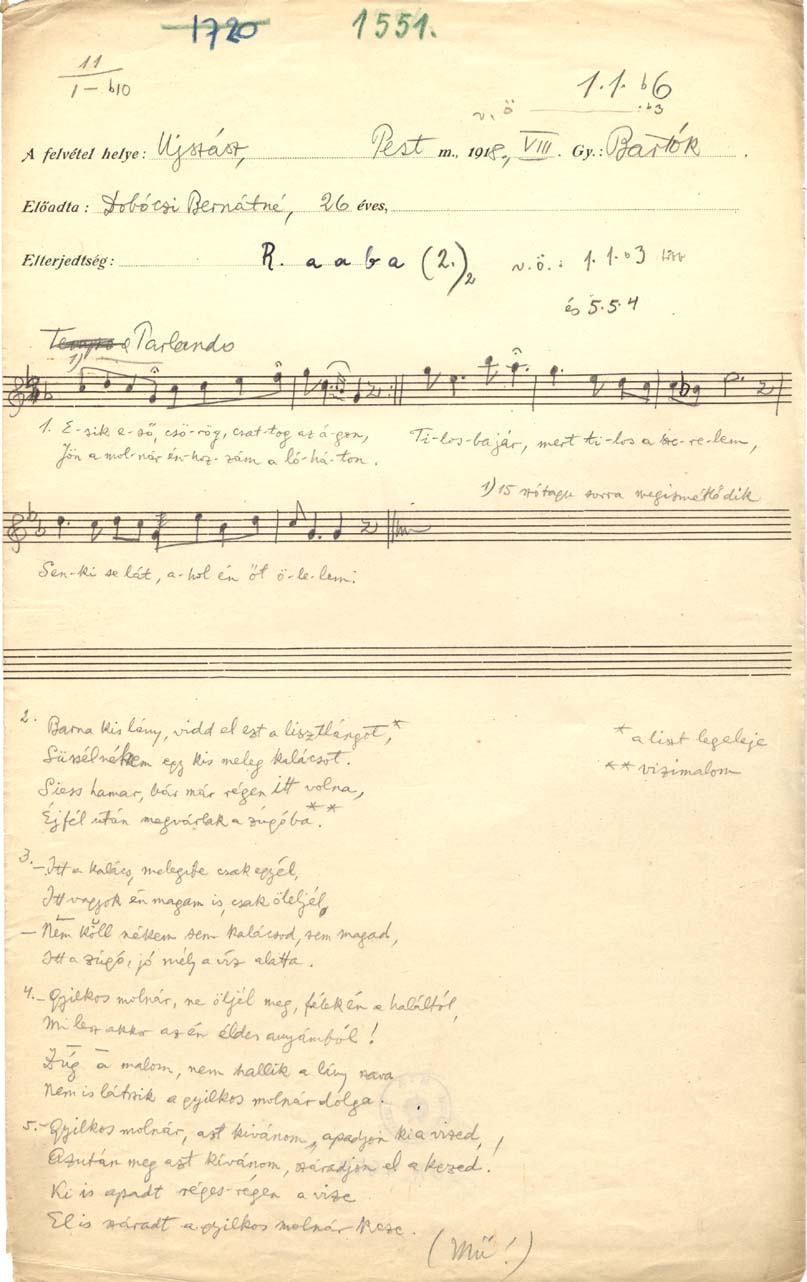 1720 1551.
11
I – b10
1.1. b6
v. ö : b3
A felvétel helye: Ujszász, Pest m., 1918., VIII. Gy.: Bartók.
Előadta: Dobóczi Bernátné, 26 éves,
Elterjedtség: R. a a b a (2.)2 v.ö.: 1.1.b3
és 5.5.4
Tempo Parlando
1)
1. E-sik e-ső, csö-rög, csat-tog az á-gon, Ti-los-bajár, mert ti-los a sze-re-lem,
Jön a mol-nár én-hoz-zám a ló-há-ton.
1) 15 szótagu sorra megismétlődik
Sen-ki se lát, a-hol én őt ö-le-lem.
2. Barna kis lány, vidd el ezt a lisztlángot,*
* a liszt legeleje
Süssél nékem egy kis meleg kalácsot.
** vizimalom
Siess hamar, bár már régen itt volna,
Éjfél után megvárlak a zúgóba.**
3. – Itt a kalács, melegibe csak egyél,
Itt vagyok én magam is, csak öleljél,
– Nem köll nékem sem kalácsod, sem magad,
Itt a zúgó, jó mély a víz alatta.
4. – Gyilkos molnár, ne öljél meg, félek én a haláltól,
Mi lesz akkor az én éldes anyámból!
Zúg a malom, nem hallik a lány szava
Nem is látszik a gyilkos molnár dolga.
5. – Gyilkos molnár, azt kivánom, apadjon ki a vized,
Azután meg azt kívánom, száradjon el a kezed!
Ki is apadt réges-régen a vize
El is száradt a gyilkos molnár keze.
(Mű!)